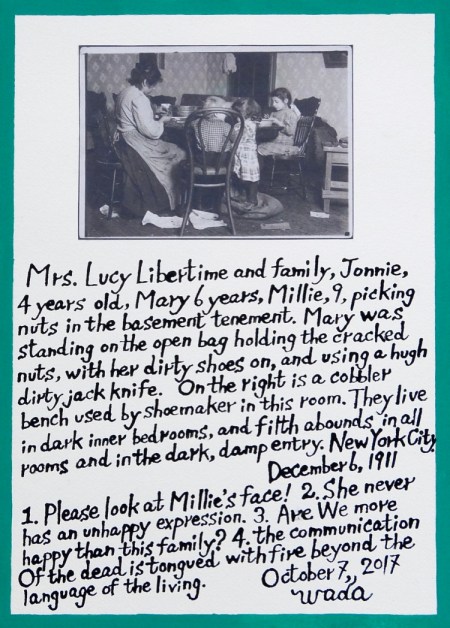 Mrs. Lucy Libertime and family, Jonnie,
4 years old, Mary 6 years, Millie, 9, picking
nuts in the basement tenement. Mary was
standing on the open bag holding the cracked
nuts, with her dirty shoes on, and using a hugh
dirty jack knife. On the right is a cobbler
bench used by shoemaker in this room. They live
in dark inner bedrooms, and filth abounds in all
rooms and in the dark, damp entry. New York City
December 6, 1911
1. Please look at Millie's face! 2. She never
has an unhappy expression. 3. Are We more
happy than this family? 4. the communication
Of the dead is tongued with fire beyond the
language of the living. October 7, 2017
Wada